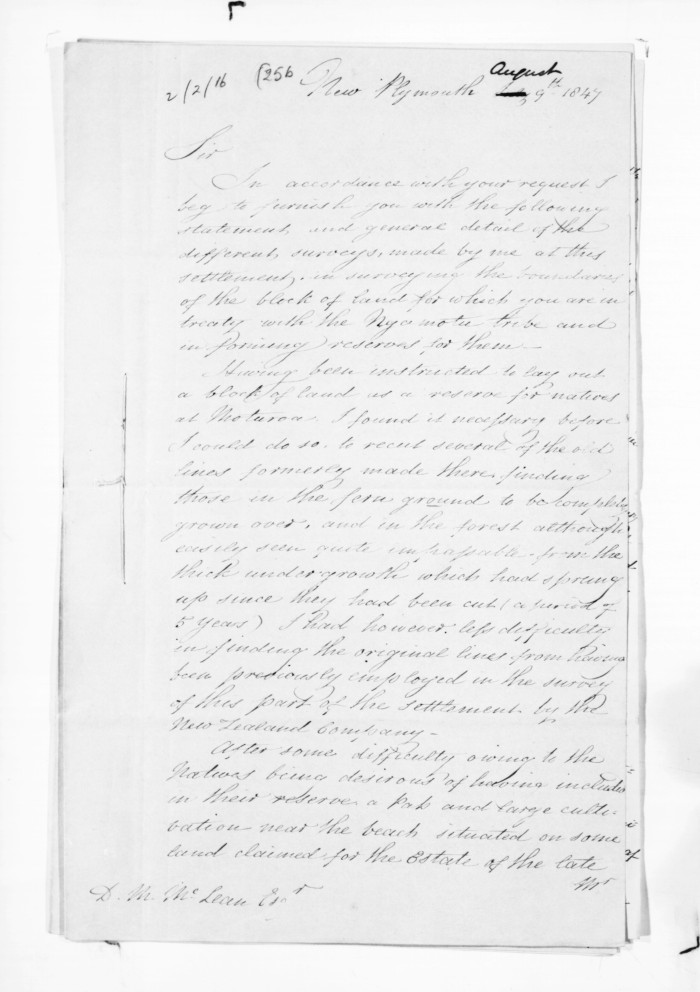 2/2/16 (256 New Plymouth August 9th 1847
Sir
In accordance with your request I
beg to furnish you with the following
statement, and general detail of the
different, surveys, made by me at this
settlement, in surveying the boundaries
of the block of land for which you are in
treaty with the Ngamotu tribe and
in forming reserves for them –
Having been instructed to lay out
a block of land as a reserve for natives
at Moturoa. I found it necessary before
I could do so. to recut several of the old
lines formerly made there, finding
those in the fern ground to be completely
grown over, and in the forest although
easily seen quite impassable from the
thick undergrowth which had sprung
up since they had been cut (a period of
5 years) I had however. less difficulty
in finding the original lines from having
been previously employed in the survey
of this part of the settlement by the
New Zealand Company –
After some difficulty owing to the
Natives being desirous of having included
in their reserve a Pah and large culti-
vation near the beach situated on some
land claimed for the Estate of the late
Mr
D. M. McLean Esqr
of